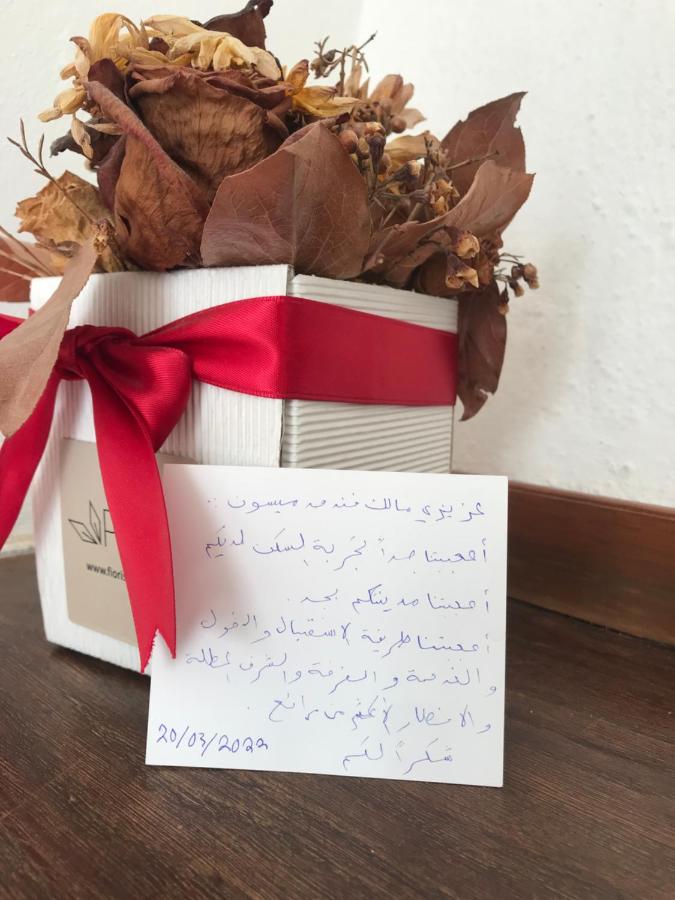 عزيزي مالك فندق ميسون :
أعجبتنا جداً تجربة السكن لديكم
أعجبتنا مدينتكم بجد .
أعجبتنا طريقة الاستقبال والدخول
والخدمة والغرفة والشرفة المطلة
والافطار الأكثر من رائع .
شكراً لكم
20/03/2022
www.fioris